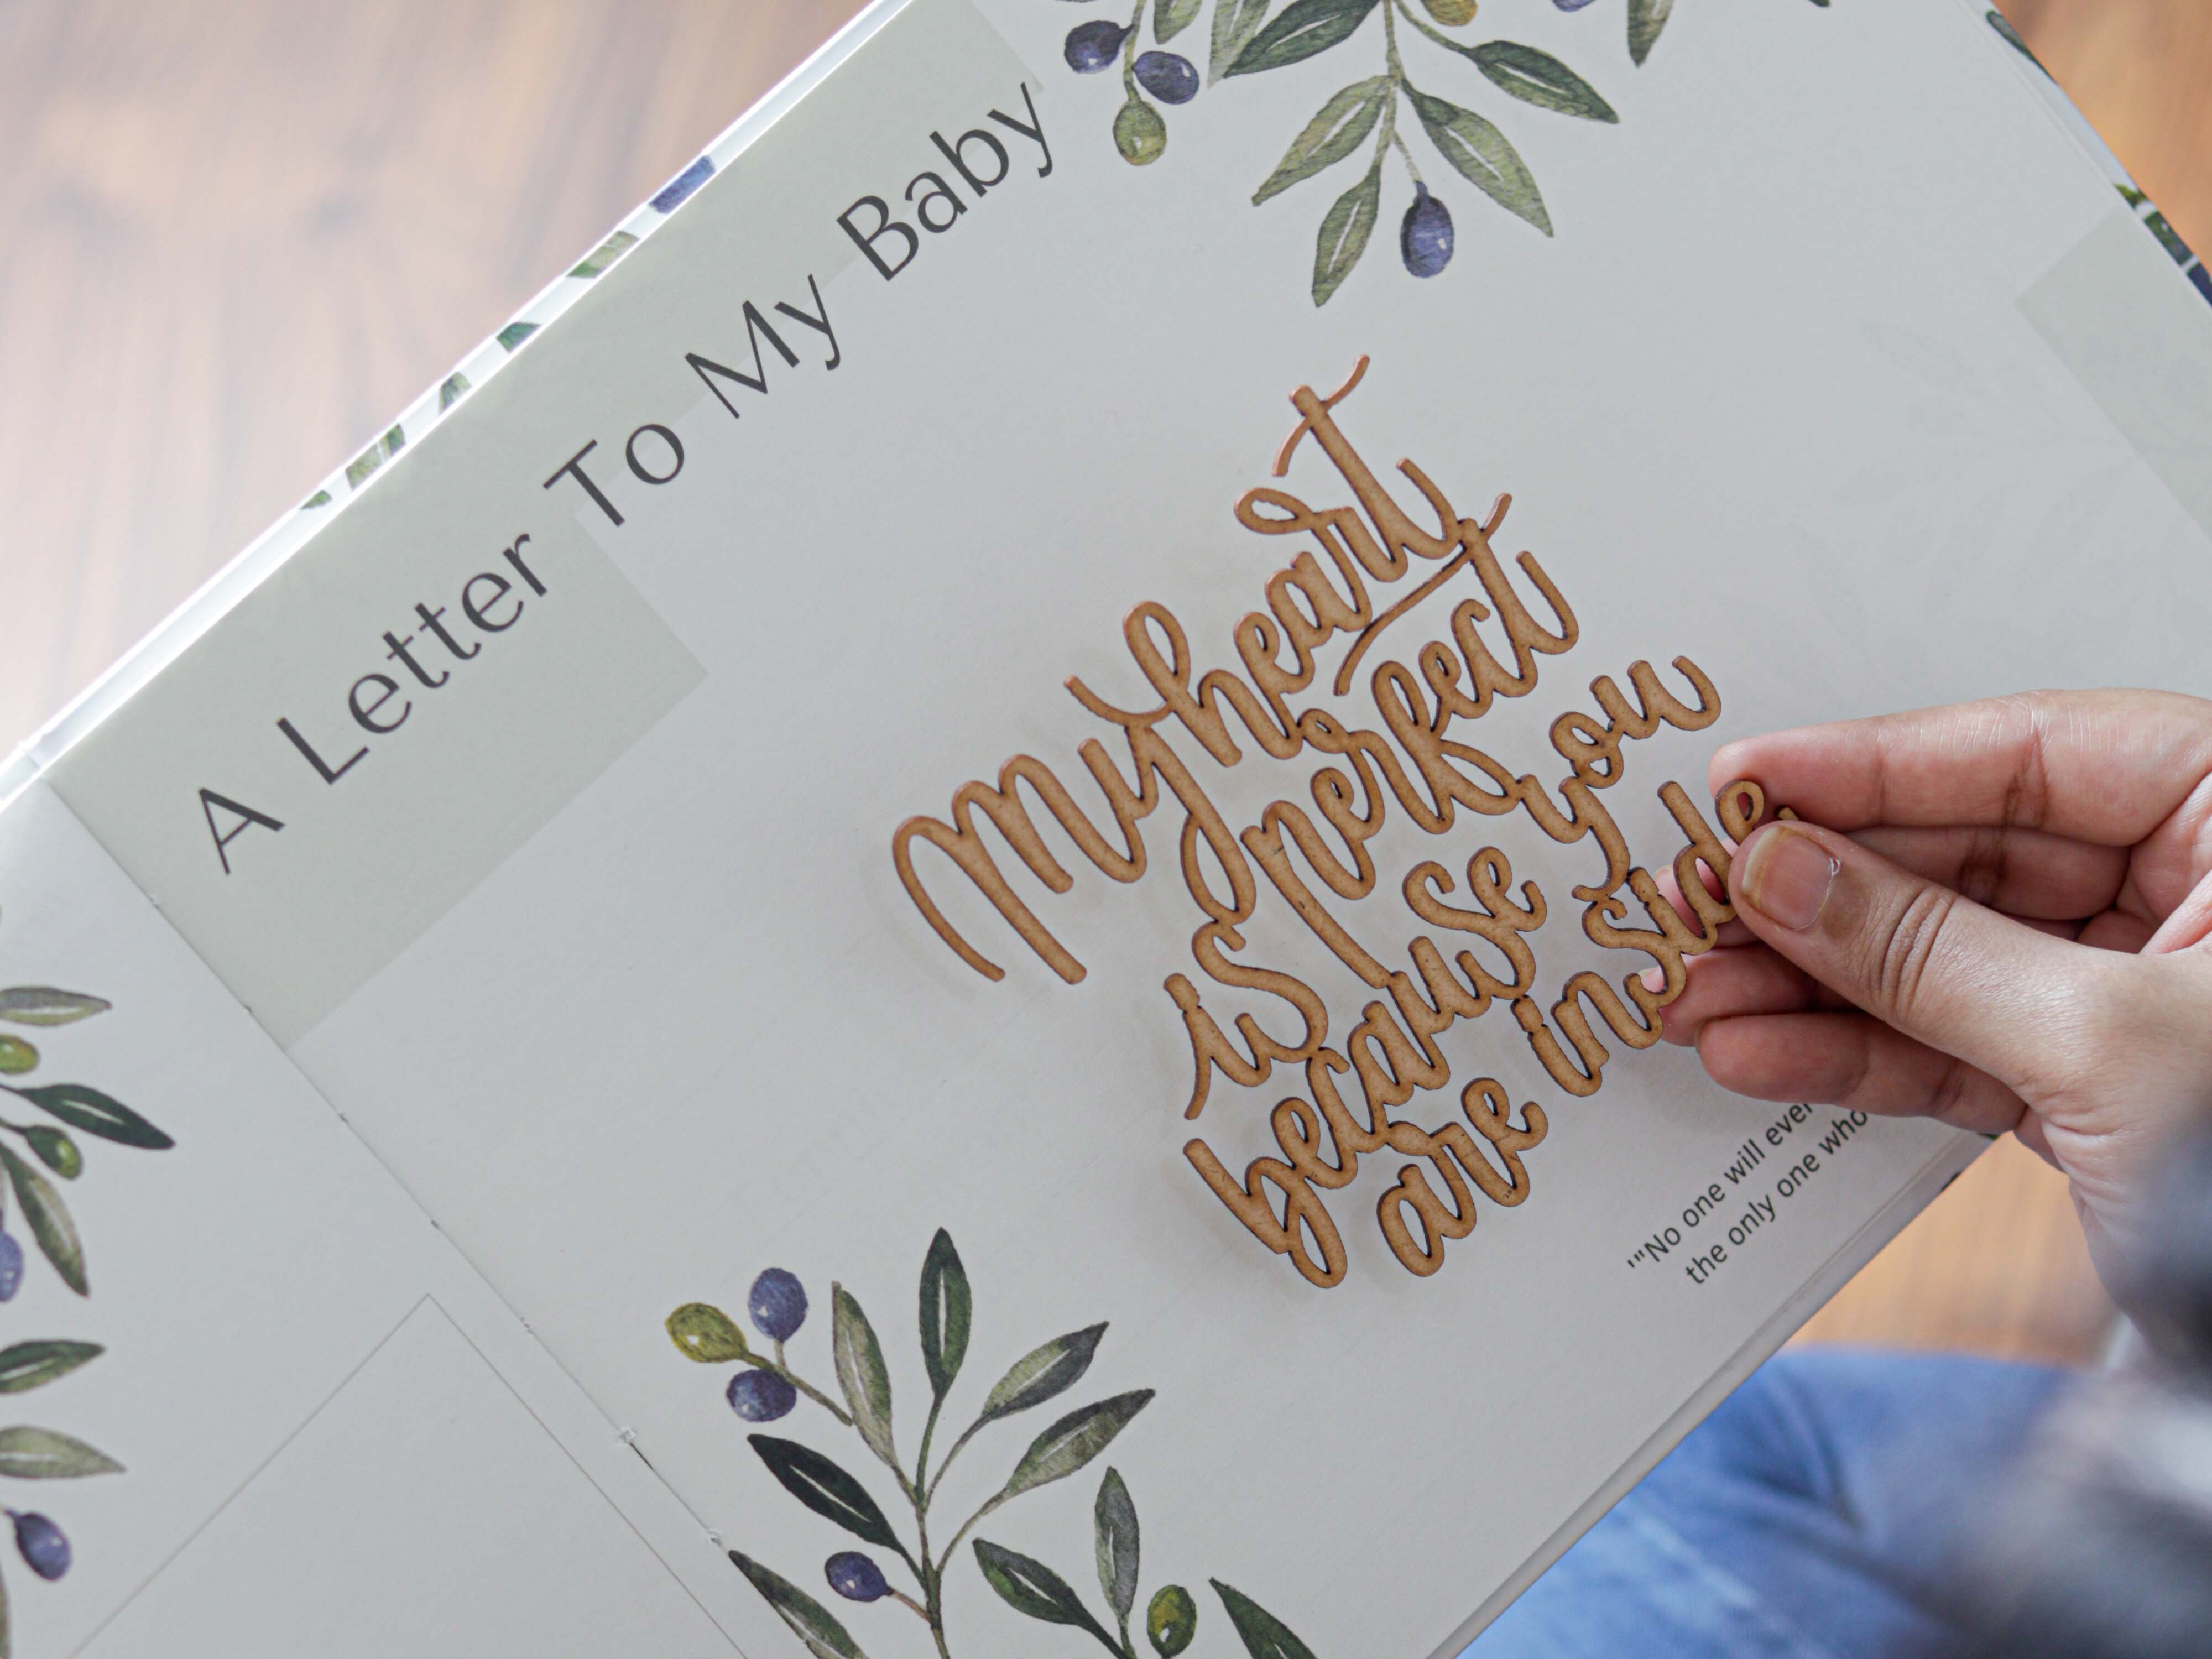 A Letter To My Baby
My heart
is perfect
because you
are inside
"'No one will ever
the only one who